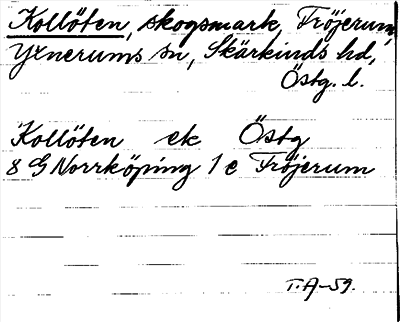 Kollöten, skogsmark, Fröjerum,
Yxnerums sn, Skärkinds hd,
Östg. l.
Kollöten ek Östg
8 G Norrköping 1 e Fröjerum
T.A-59.